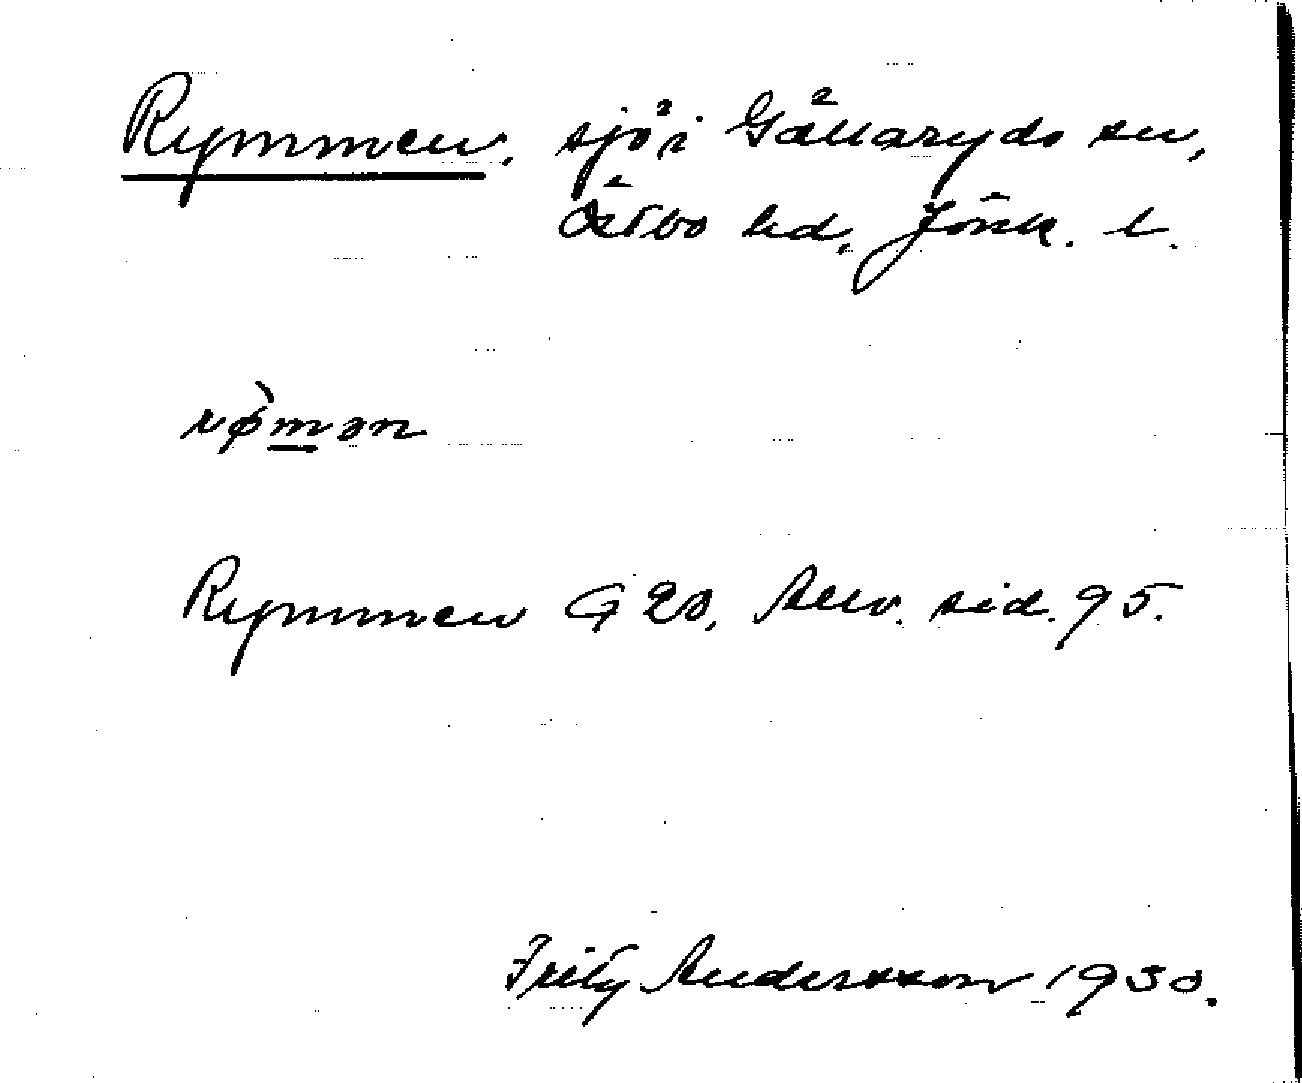 Rymmen, sjö i Gällaryds sn,
Östbo hd, Jönk. l.
rø̀mən
Rymmen G 20, Anv. sid. 95.
Fritz Andersson 1930.